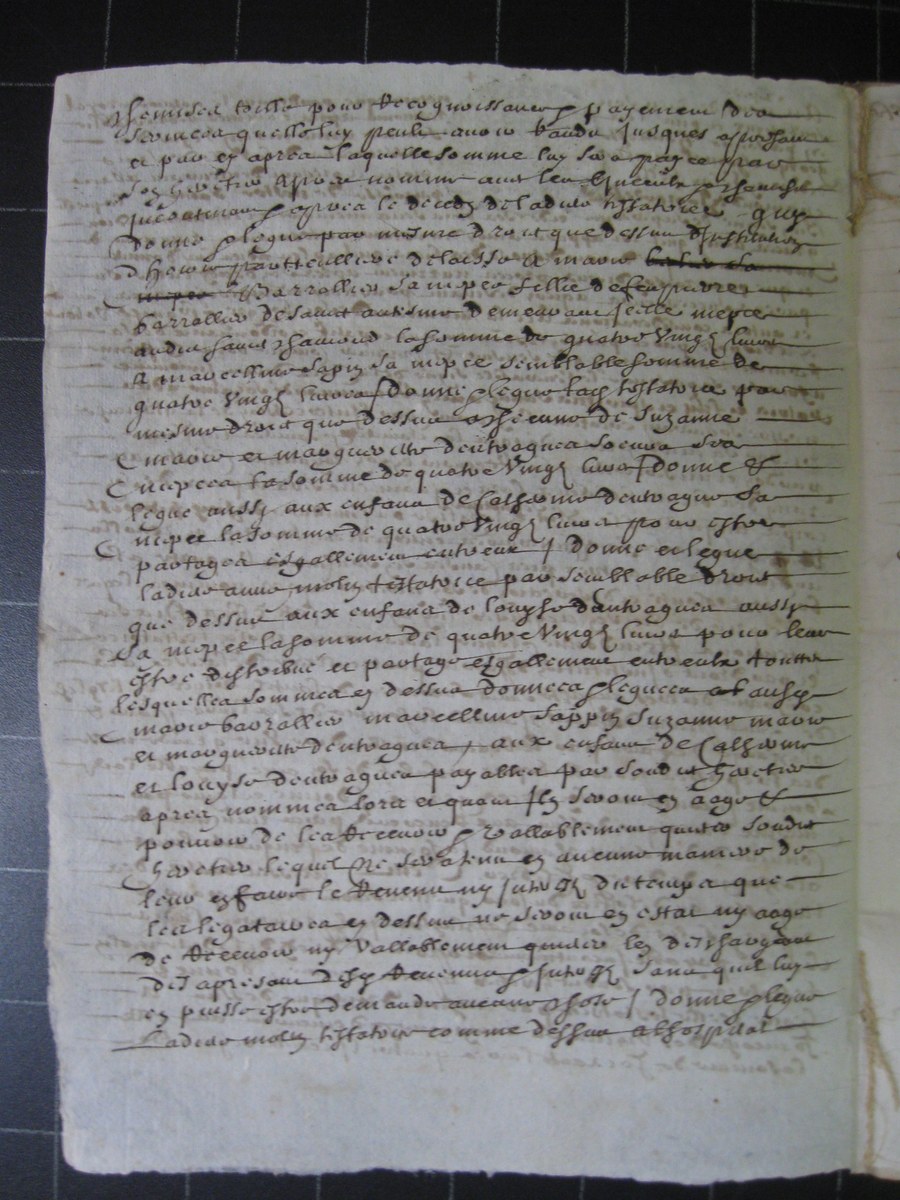 chemises toille pour recognoissance & payement des
services quelle luy peult avoir randu jusques a present
et par cy apres laquelle somme luy sera payee par
son heretier apres nomme
incontinant apres le deces de ladite testatrice
donne & legue par mesme droit que dessus dinstitution
dheoir particulliere delaisse a marie
niepce barrallier sa niepce fillie de feu pierre
barrallier de sainct
andre sainct chamond la somme de quatre vingtz livres
a marcelline sapin sa niepce semblable somme de
quatre vingtz livres / donne & legue lad testatrice par
mesme droit que dessus a chescune de suzanne
marie et margueritte dentragues soeurs ses
niepces la somme de quatre vingtz livres / donne &
legue aussy aux enfans de Catherine dentragues sa
niepce la somme de quatre vingtz livres pour estre
partagee esgallement entreux / donne et legue
ladite anne molin testatrice par semblable droit
que dessus aux enfans de louyse dentragues aussy
sa niepce la somme de quatre vingtz livres pour leur
estre distribue et partage esgallement entreulx toutes
lesquelles sommes cy dessus donnees & leguees
marie barrallier marcelline sappin suzanne marie
et margueritte dentragues, aux enfans de Catherine
et louyse dentragues payables par sondit heretier
apres nomme lors et quant ilz seront en aage &
pouvoir de les recevoir & vallablement quicter sondit
heretier lequel ne sera tenu en aucune maniere de
leur en faire le revenu ny interestz du temps que
les legataires cy dessus ne seront en estat ny aage
de recevoir ny vallablement quicter les deschargeant
des apresant desd revenus & interestz sans quil luy
en puisse estre demande aucune chose / donne & legue
Ladite molin testatrice comme dessus a lhospital